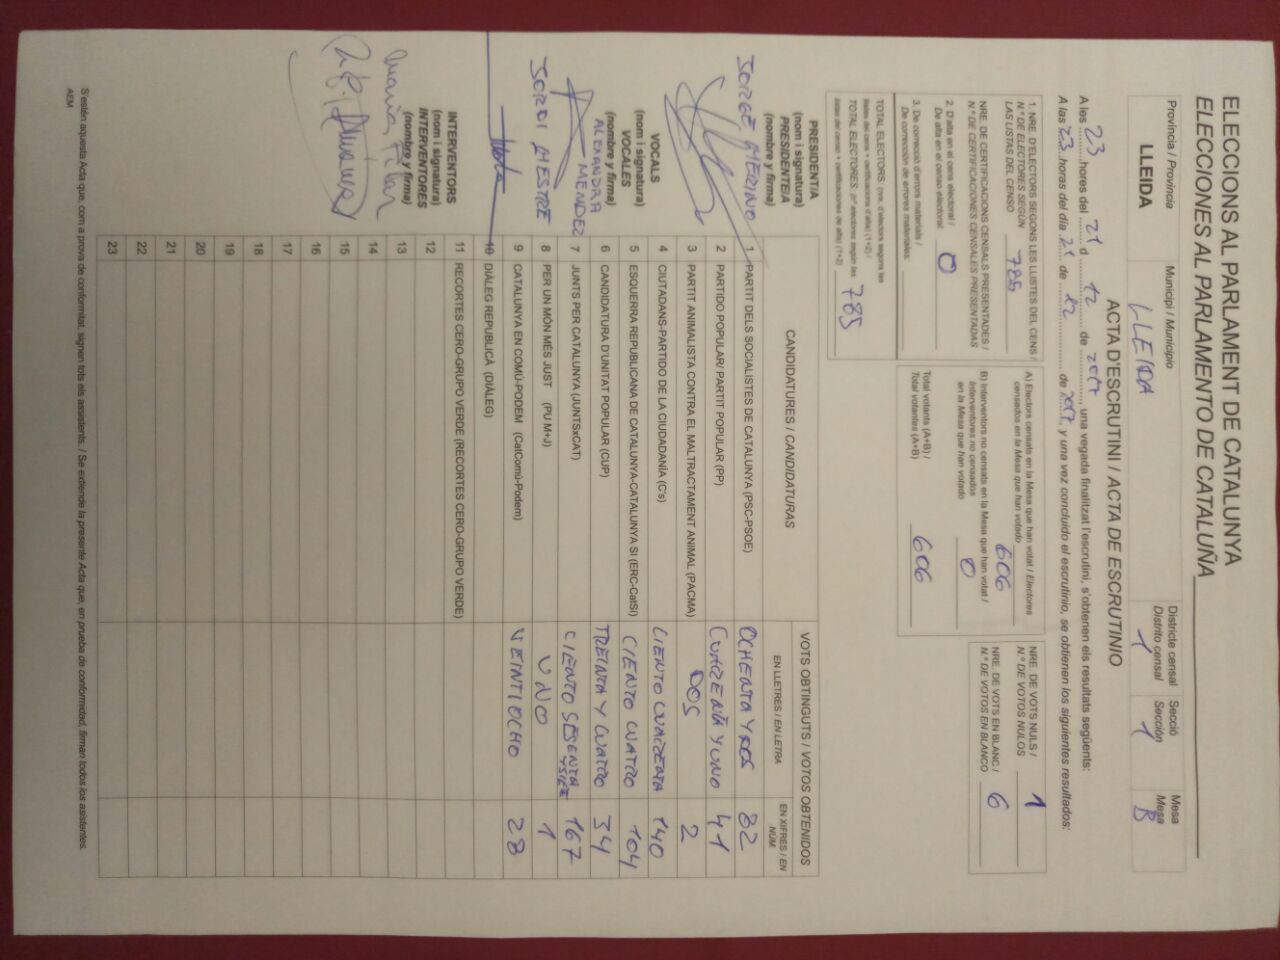 ELECCIONS AL PARLAMENT DE CATALUNYA
ELECCIONES AL PARLAMENTO DE CATALUÑA
Província / Provincia
LLEIDA
Municipi / Municipio
LLEIDA
Districte censal
Distrito censal
1
Secció
Sección
1
Mesa
Mesa
B
ACTA D'ESCRUTINI / ACTA DE ESCRUTINIO
A les 23 hores del 21 d 12 de 2017, una vegada finalitzat l'escrutini, s'obtenen els resultats següents:
A las 23 horas del día 21 de 12 de 2017, y una vez concluido el escrutinio, se obtienen los siguientes resultados:
1. NRE. D'ELECTORS SEGONS LES LLISTES DEL CENS /
Nº DE ELECTORES SEGÚN
LAS LISTAS DEL CENSO 785
NRE. DE CERTIFICACIONS CENSALS PRESENTADES /
Nº DE CERTIFICACIONES CENSALES PRESENTADAS
2. D'alta en el cens electoral /
De alta en el censo electoral: 0
3. De correcció d'errors materials /
De corrección de errores materiales:
TOTAL ELECTORS: (nre. d'electors segons les
llistes del cens + certificacions d'alta) (1+2) /
TOTAL ELECTORES: (nº electores según las
listas del censo + certificaciones de alta) (1+2) 785
A) Electors censats en la Mesa que han votat / Electores
censados en la Mesa que han votado 606
B) Interventors no censats en la Mesa que han votat /
Interventores no censados
en la Mesa que han votado 0
Total votants (A+B) /
Total votantes (A+B) 606
NRE. DE VOTS NULS /
Nº DE VOTOS NULOS 1
NRE. DE VOTS EN BLANC /
Nº DE VOTOS EN BLANCO 6
CANDIDATURES / CANDIDATURAS
VOTS OBTINGUTS / VOTOS OBTENIDOS
EN LLETRES / EN LETRA
EN XIFRES / EN NÚM.
1 PARTIT DELS SOCIALISTES DE CATALUNYA (PSC-PSOE) OCHENTA Y DOS 82
2 PARTIDO POPULAR/ PARTIT POPULAR (PP) CUARENTA Y UNO 41
3 PARTIT ANIMALISTA CONTRA EL MALTRACTAMENT ANIMAL (PACMA) DOS 2
4 CIUTADANS-PARTIDO DE LA CIUDADANÍA (C's) CIENTO CUARENTA 140
5 ESQUERRA REPUBLICANA DE CATALUNYA-CATALUNYA SÍ (ERC-CatSí) CIENTO CUATRO 104
6 CANDIDATURA D'UNITAT POPULAR (CUP) TREINTA Y CUATRO 34
7 JUNTS PER CATALUNYA (JUNTSxCAT) CIENTO SESENTA Y SIETE 167
8 PER UN MÓN MÉS JUST (PU M+J) UNO 1
9 CATALUNYA EN COMÚ-PODEM (CatComú-Podem) VEINTIOCHO 28
10 DIÀLEG REPUBLICÀ (DIÀLEG)
11 RECORTES CERO-GRUPO VERDE (RECORTES CERO-GRUPO VERDE)
12
13
14
15
16
17
18
19
20
21
22
23
PRESIDENT/A
(nom i signatura)
PRESIDENTE/A
(nombre y firma)
JORGE MERINO
VOCALS
(nom i signatura)
VOCALES
(nombre y firma)
ALEXANDRA
MENDEZ
JORDI MESTRE
INTERVENTORS
(nom i signatura)
INTERVENTORES
(nombre y firma)
S'estén aquesta Acta que, com a prova de conformitat, signen tots els assistents. / Se extiende la presente Acta que, en prueba de conformidad, firman todos los asistentes.
AEM